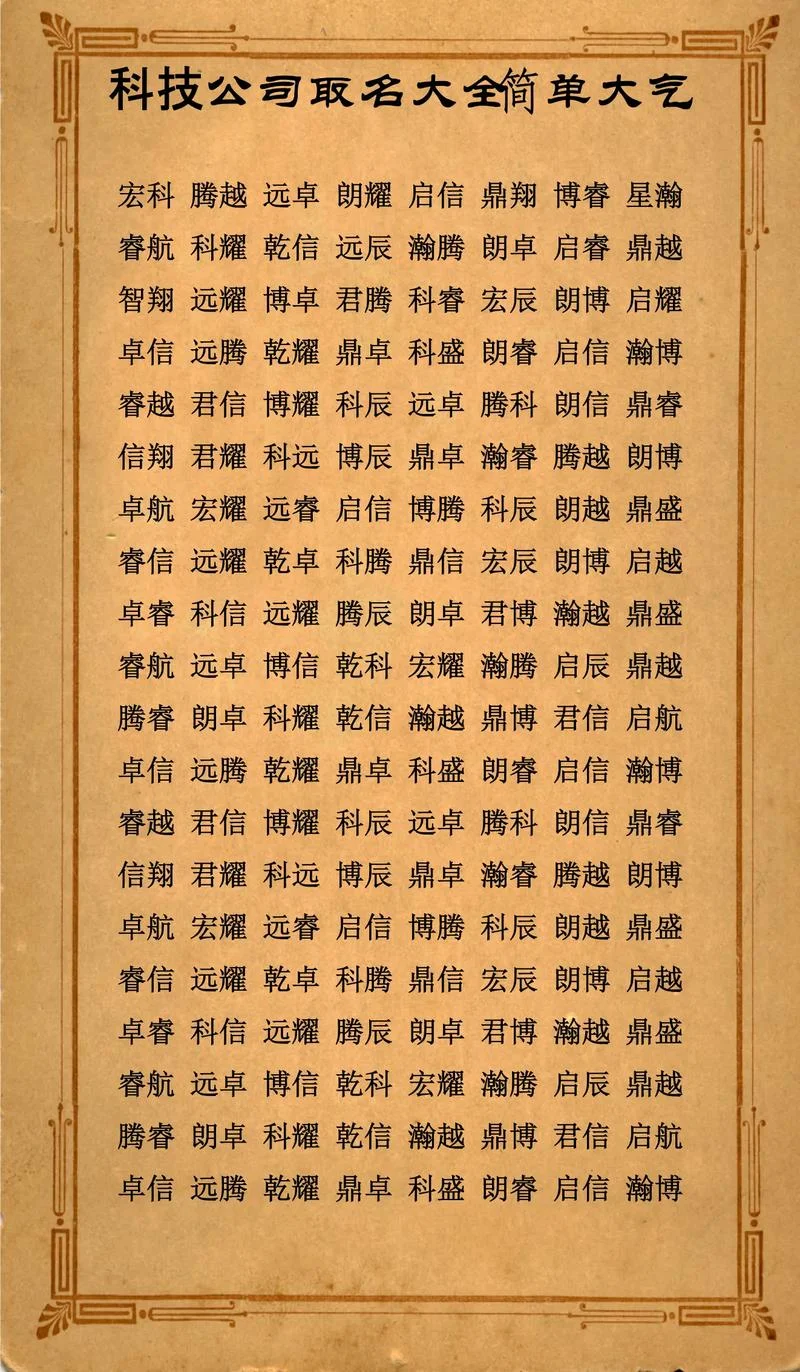 科技公司取名大全简单大气
宏科 腾越 远卓 朗耀 启信 鼎翔 博睿 星瀚
睿航 科耀 乾信 远辰 瀚腾 朗卓 启睿 鼎越
智翔 远耀 博卓 君腾 科睿 宏辰 朗博 启耀
卓信 远腾 乾耀 鼎卓 科盛 朗睿 启信 瀚博
睿越 君信 博耀 科辰 远卓 腾科 朗信 鼎睿
信翔 君耀 科远 博辰 鼎卓 瀚睿 腾越 朗博
卓航 宏耀 远睿 启信 博腾 科辰 朗越 鼎盛
睿信 远耀 乾卓 科腾 鼎信 宏辰 朗博 启越
卓睿 科信 远耀 腾辰 朗卓 君博 瀚越 鼎盛
睿航 远卓 博信 乾科 宏耀 瀚腾 启辰 鼎越
腾睿 朗卓 科耀 乾信 瀚越 鼎博 君信 启航
卓信 远腾 乾耀 鼎卓 科盛 朗睿 启信 瀚博
睿越 君信 博耀 科辰 远卓 腾科 朗信 鼎睿
信翔 君耀 科远 博辰 鼎卓 瀚睿 腾越 朗博
卓航 宏耀 远睿 启信 博腾 科辰 朗越 鼎盛
睿信 远耀 乾卓 科腾 鼎信 宏辰 朗博 启越
卓睿 科信 远耀 腾辰 朗卓 君博 瀚越 鼎盛
睿航 远卓 博信 乾科 宏耀 瀚腾 启辰 鼎越
腾睿 朗卓 科耀 乾信 瀚越 鼎博 君信 启航
卓信 远腾 乾耀 鼎卓 科盛 朗睿 启信 瀚博